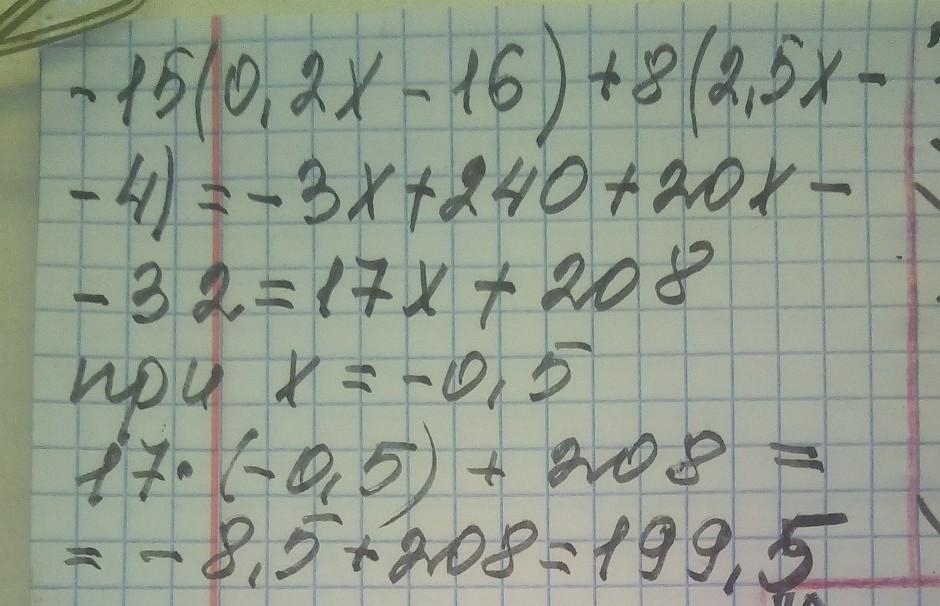 -15(0,2x-16)+8(2,5x-
-4)=-3x+240+20x-
-32=17x+208
при x=-0,5
17·(-0,5)+208=
=-8,5+208=199,5